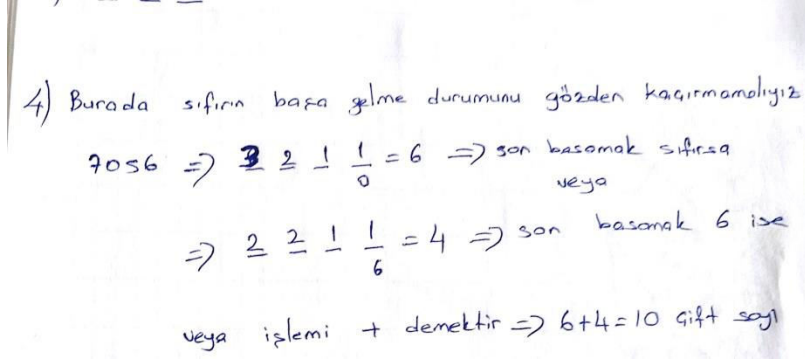 4) Burada sıfırın başa gelme durumunu gözden kaçırmamalıyız
7056 => 3 2 1 1 = 6 => son basamak sıfırsa
0 veya
=> 2 2 1 1 = 4 => son basamak 6 ise
6
veya işlemi + demektir => 6+4=10 çift sayı